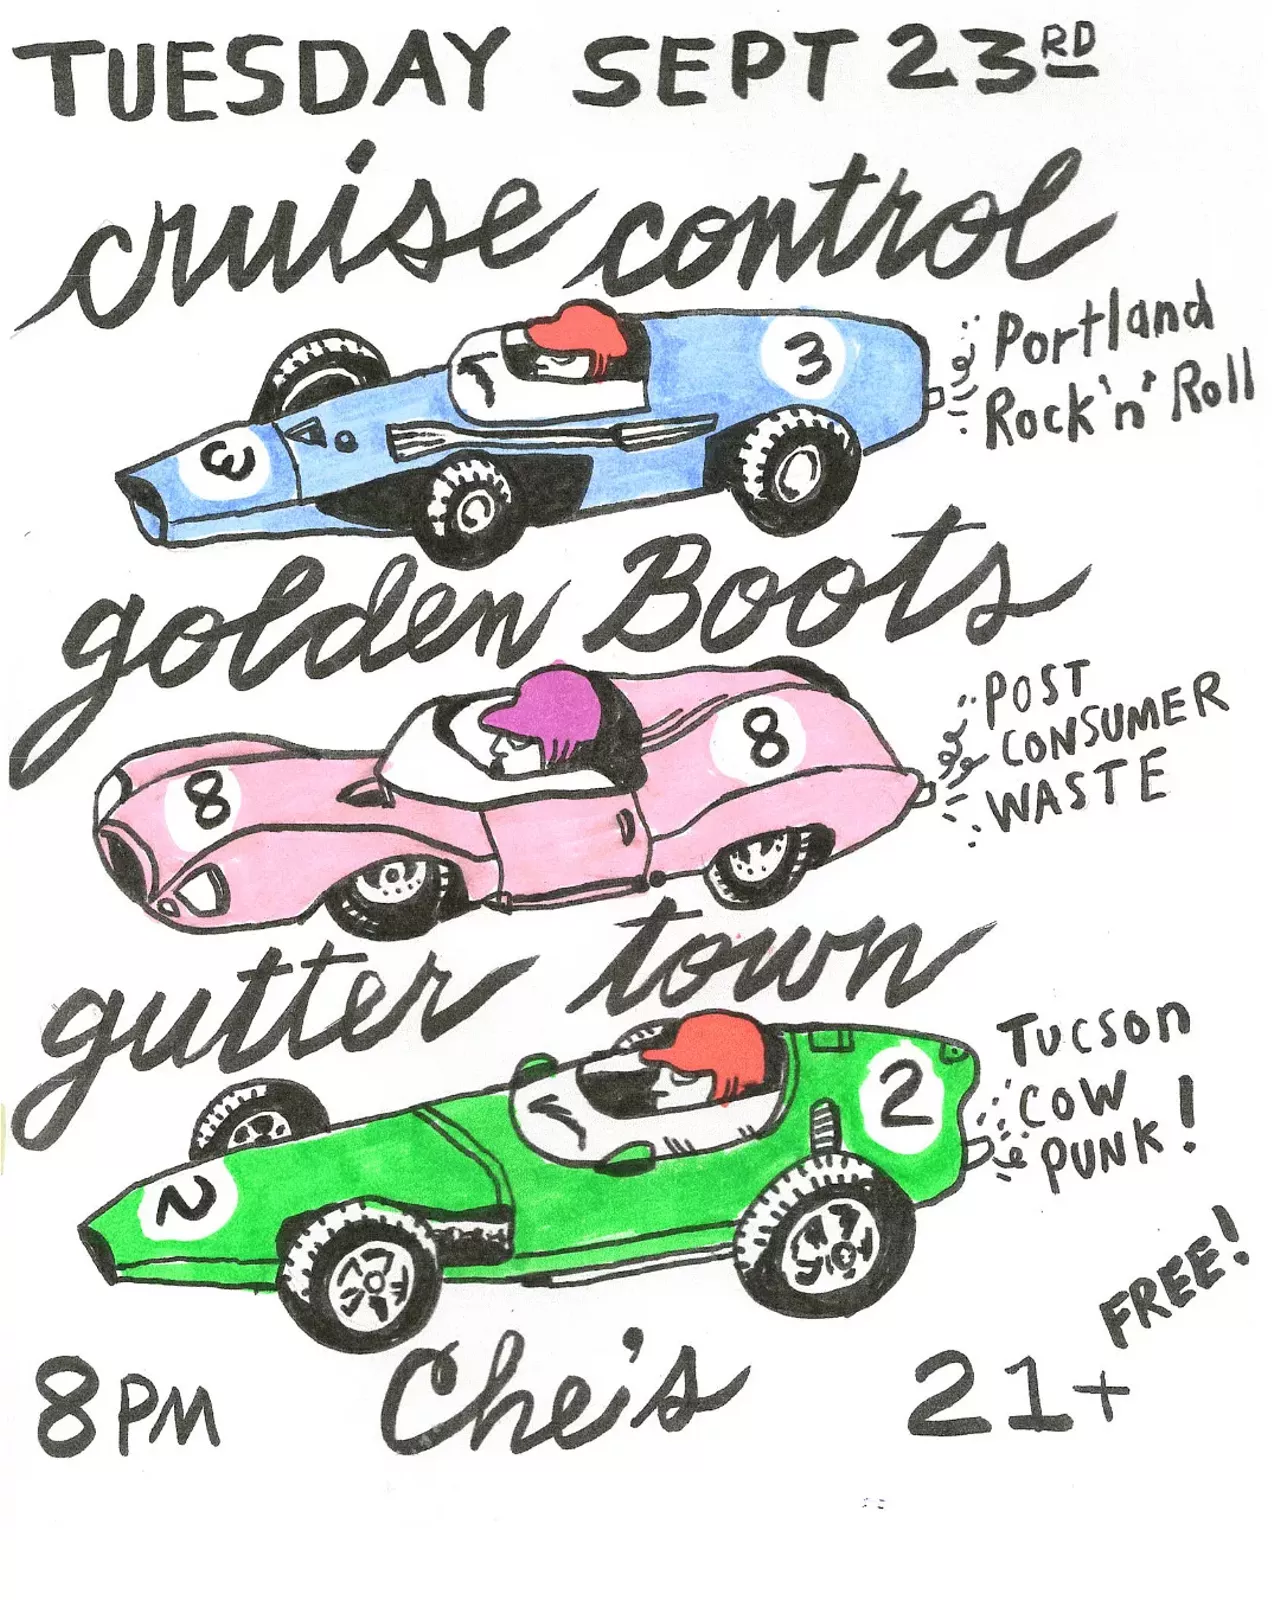 TUESDAY SEPT 23RD
cruise control
3
3
Portland
Rock 'n' Roll
golden Boots
8
8
POST
CONSUMER
WASTE
gutter town
2
2
Tucson
COW
PUNK!
FREE!
8PM Che's 21+